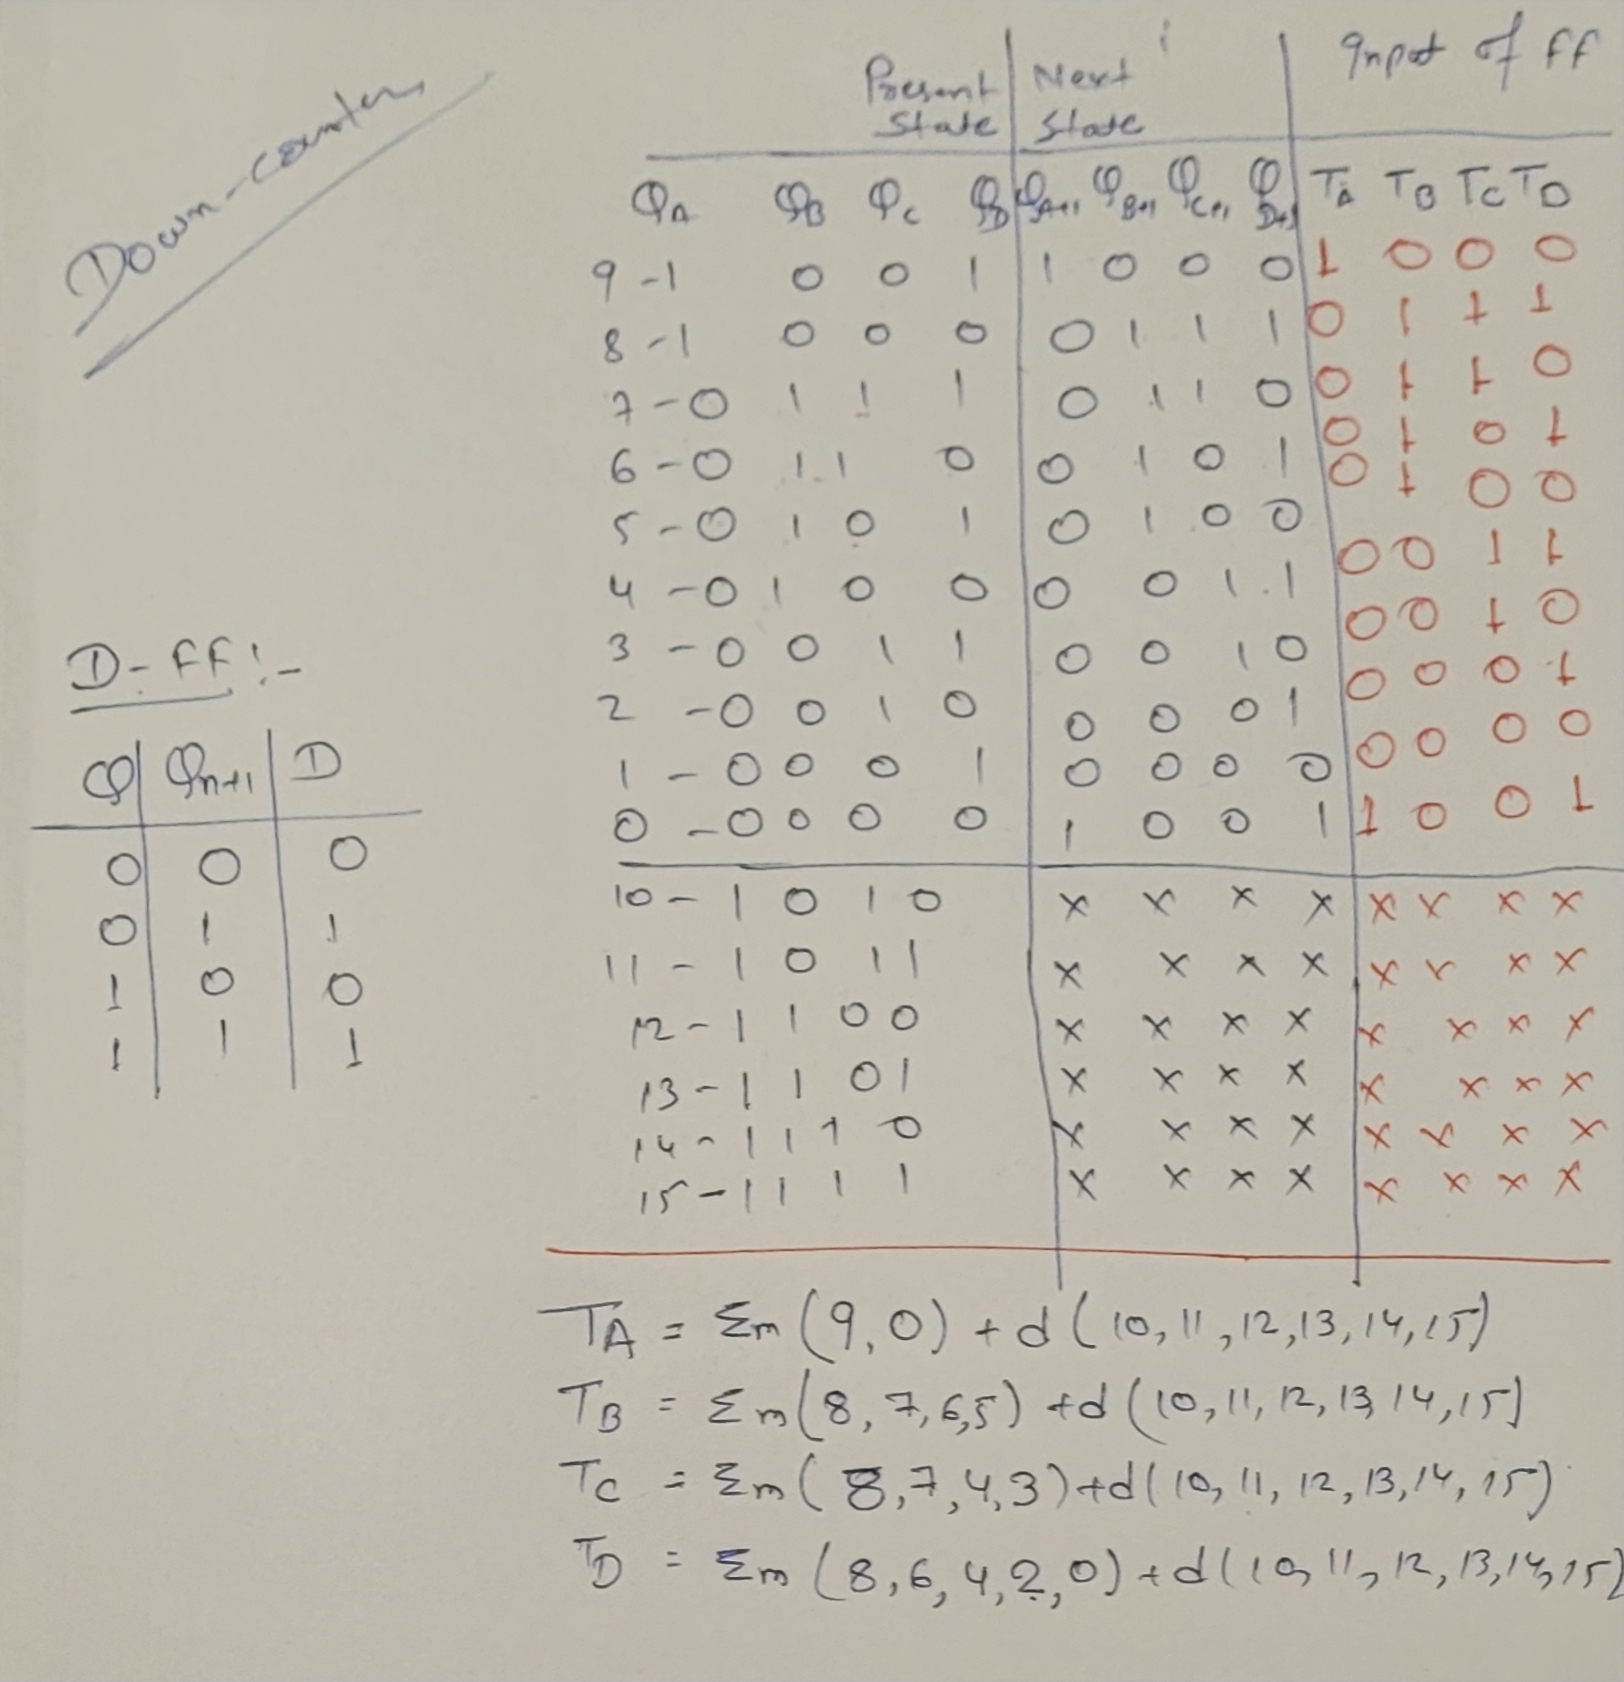 Down-counter
Present State | Next State | Input of ff
QA QB QC QD | QA+1 QB+1 QC+1 QD+1 | TA TB TC TD
9 - 1 0 0 1 | 1 0 0 0 | 1 0 0 0
8 - 1 0 0 0 | 0 1 1 1 | 0 1 1 1
7 - 0 1 1 1 | 0 1 1 0 | 0 1 1 0
6 - 0 1 1 0 | 0 1 0 1 | 0 1 0 1
5 - 0 1 0 1 | 0 1 0 0 | 0 1 0 0
4 - 0 1 0 0 | 0 0 1 1 | 0 0 1 1
3 - 0 0 1 1 | 0 0 1 0 | 0 0 1 0
2 - 0 0 1 0 | 0 0 0 1 | 0 0 0 1
1 - 0 0 0 1 | 0 0 0 0 | 0 0 0 0
0 - 0 0 0 0 | 1 0 0 1 | 1 0 0 1
10 - 1 0 1 0 | x x x x | x x x x
11 - 1 0 1 1 | x x x x | x x x x
12 - 1 1 0 0 | x x x x | x x x x
13 - 1 1 0 1 | x x x x | x x x x
14 - 1 1 1 0 | x x x x | x x x x
15 - 1 1 1 1 | x x x x | x x x x
D-ff:-
Q | Qn+1 | D
0 | 0 | 0
0 | 1 | 1
1 | 0 | 0
1 | 1 | 1
TA = Σm(9,0) + d(10,11,12,13,14,15)
TB = Σm(8,7,6,5) + d(10,11,12,13,14,15)
TC = Σm(8,7,4,3) + d(10,11,12,13,14,15)
TD = Σm(8,6,4,2,0) + d(10,11,12,13,14,15)